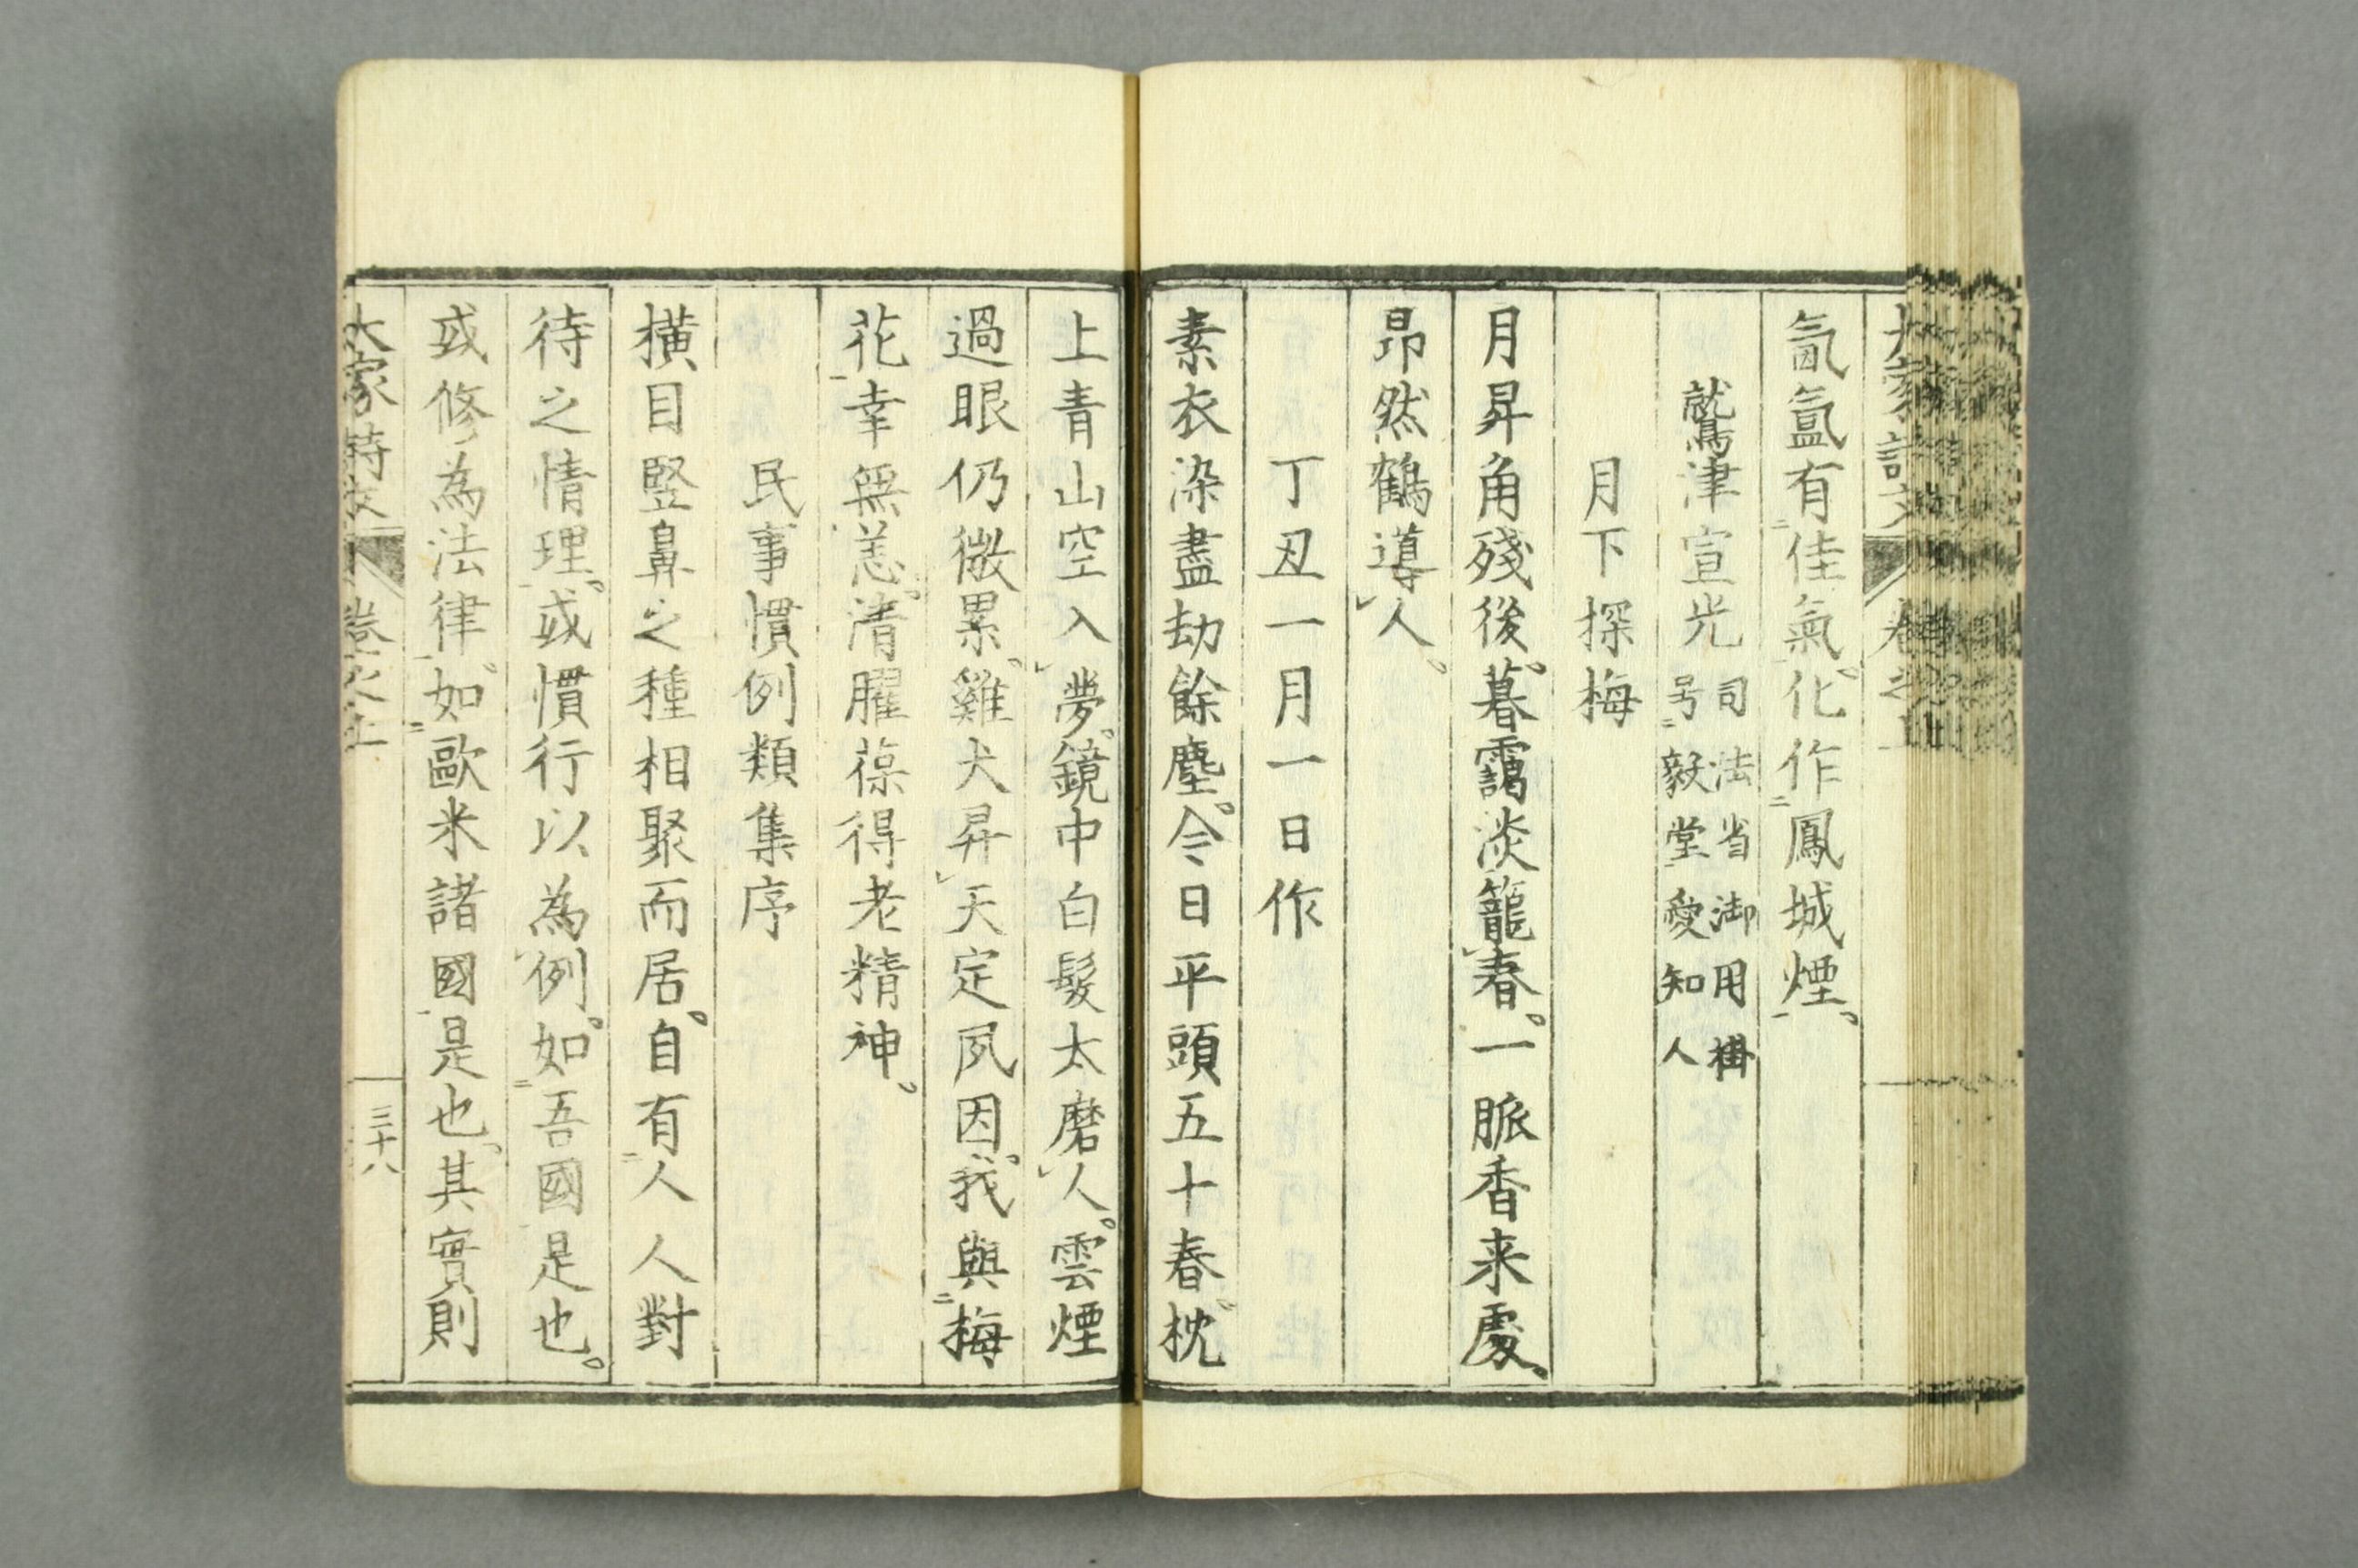 大家詩文 卷之上
氤氳有佳氣。化作鳳城煙。
鷲津宣光 司法省御用掛
号毅堂愛知人
月下探梅
月昇角殘後。暮靄淡籠春。一脈香来處、
昂然鶴導人。
丁丑一月一日作
素衣染盡劫餘塵。今日平頭五十春。枕
上青山空入夢。鏡中白髮太磨人。雲煙
過眼仍微累。雞犬昇天定夙因。我與梅
花幸無恙。清臞葆得老精神。
民事慣例類集序
橫目竪鼻之種相聚而居。自有人人對
待之情理。或慣行以為例。如吾國是也。
或修為法律。如歐米諸國是也。其實則
大家詩文 卷之上 三十八